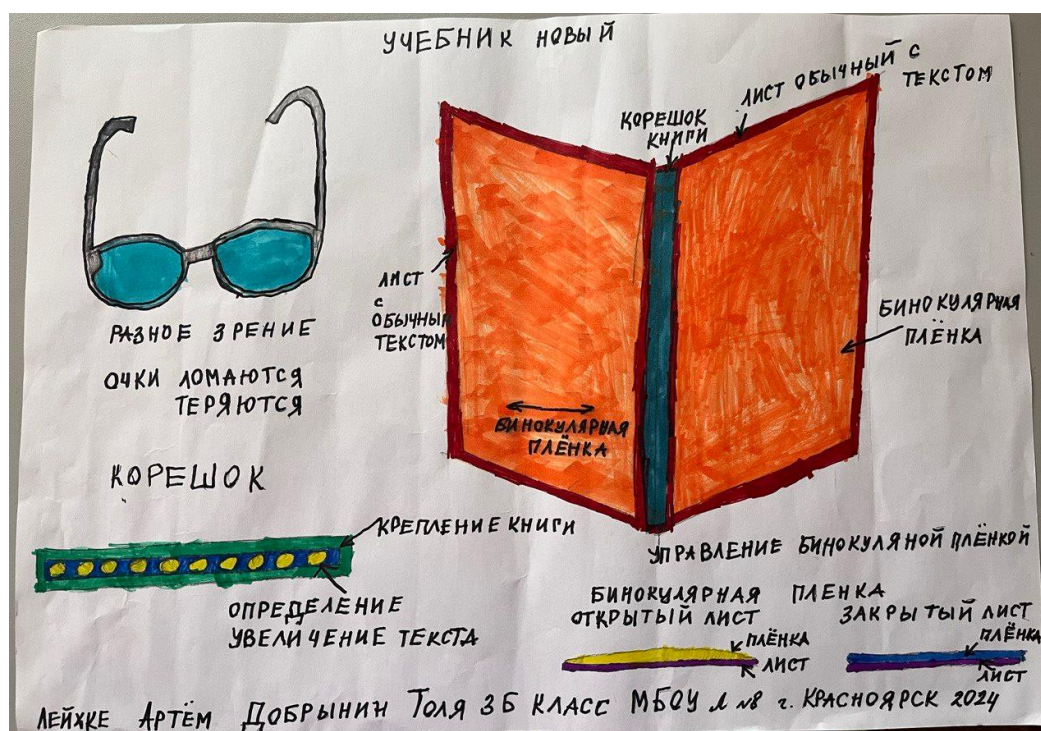 УЧЕБНИК НОВЫЙ
ЛИСТ ОБЫЧНЫЙ С
ТЕКСТОМ
КОРЕШОК
КНИГИ
ЛИСТ
С
ОБЫЧНЫМ
ТЕКСТОМ
БИНОКУЛЯРНАЯ
ПЛЁНКА
РАЗНОЕ ЗРЕНИЕ
ОЧКИ ЛОМАЮТСЯ
ТЕРЯЮТСЯ
БИНОКУЛЯРНАЯ
ПЛЁНКА
КОРЕШОК
КРЕПЛЕНИЕ КНИГИ
ОПРЕДЕЛЕНИЕ
УВЕЛИЧЕНИЕ ТЕКСТА
УПРАВЛЕНИЕ БИНОКУЛЯНОЙ ПЛЁНКОЙ
БИНОКУЛЯРНАЯ ПЛЕНКА
ОТКРЫТЫЙ ЛИСТ
ПЛЁНКА
ЛИСТ
ЗАКРЫТЫЙ ЛИСТ
ПЛЁНКА
ЛИСТ
ЛЕЙХКЕ АРТЁМ ДОБРЫНИН ТОЛЯ 3Б КЛАСС МБОУ Л №8 г. КРАСНОЯРСК 2024